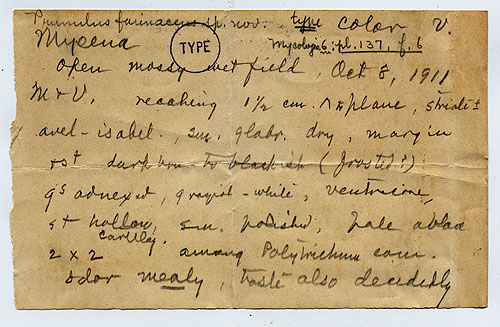 Prunulus farinaceus sp. nov. type color V.
Mycena TYPE Mycologia 6: pl. 137, f. 6
open mossy wet field, Oct 8, 1911
M & V. reaching 1½ cm. plane, striate ±
avel-isabel., sm. glabr. dry, margin
dark brn to blackish (frosted?)
gs adnexed, grayish-white, ventricose,
st hollow, sm. polished, pale
cartilag.
2 x 2 among Polytrichum com.
odor mealy, taste also decidedly